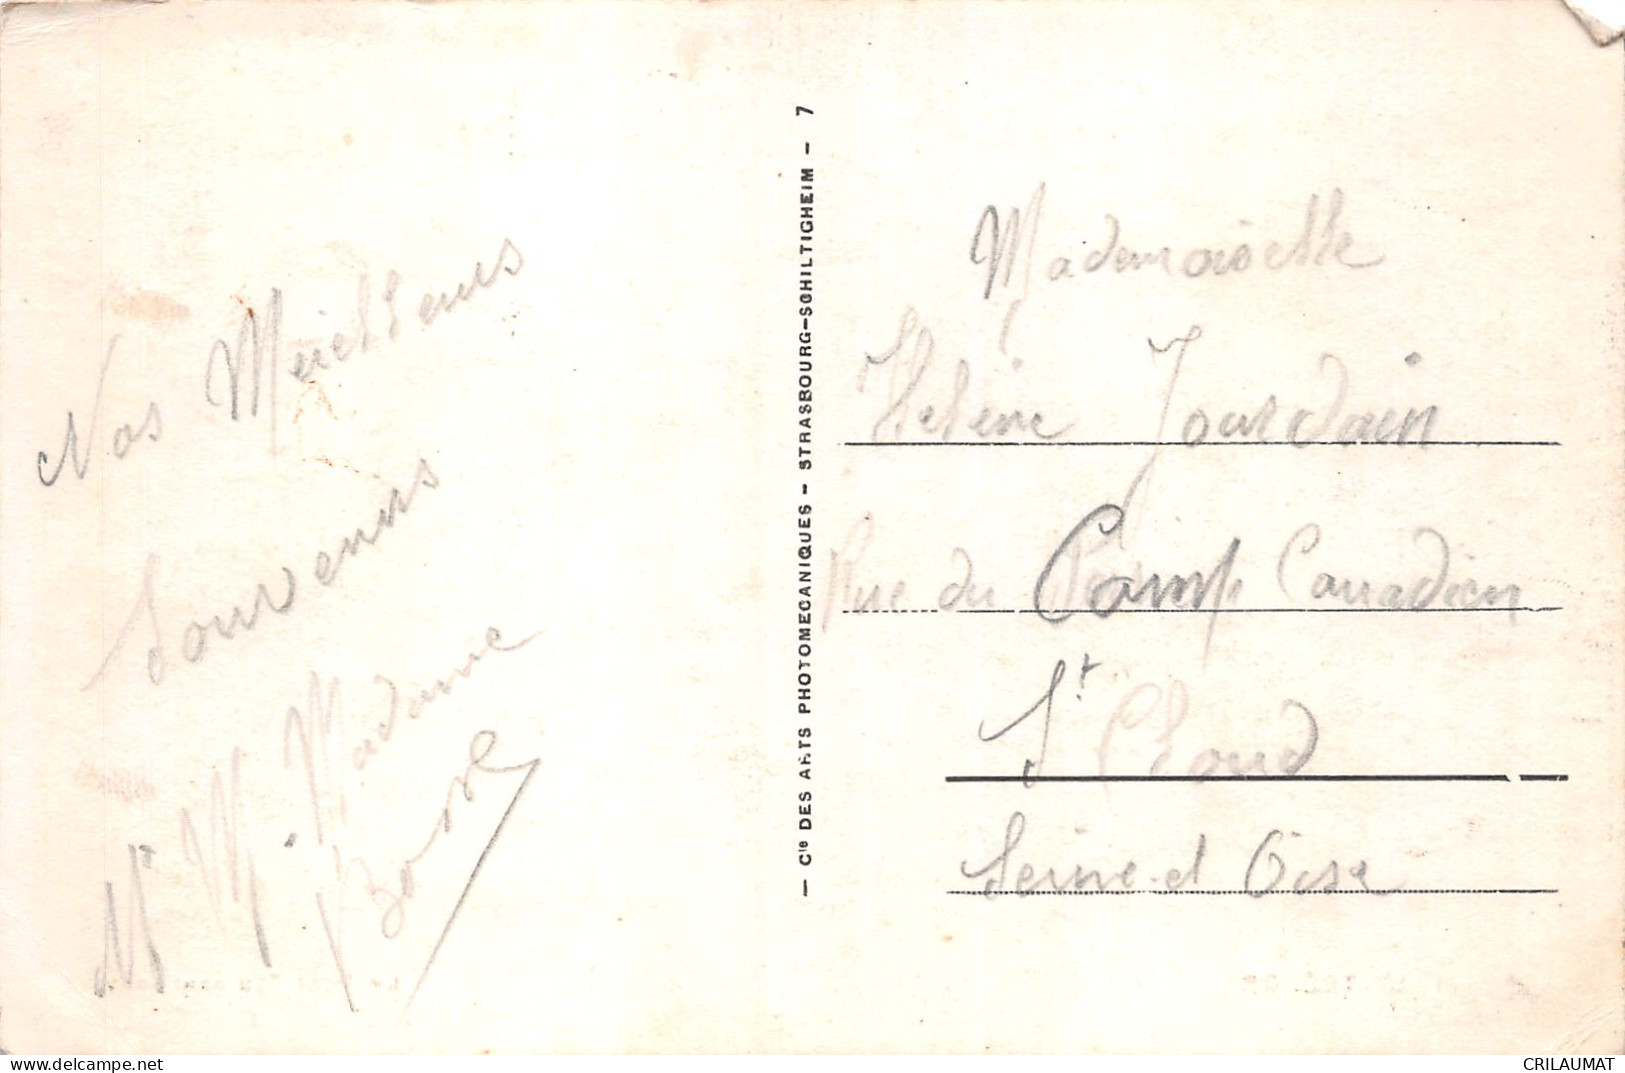 Nos Meilleurs
Souvenirs
Mr M. Madame
— Cie DES ARTS PHOTOMECANIQUES – STRASBOURG–SCHILTIGHEIM – 7
Mademoiselle
Helène Jourdain
Rue du Camp Canadien
St Cloud
Seine et Oise
CRILAUMAT